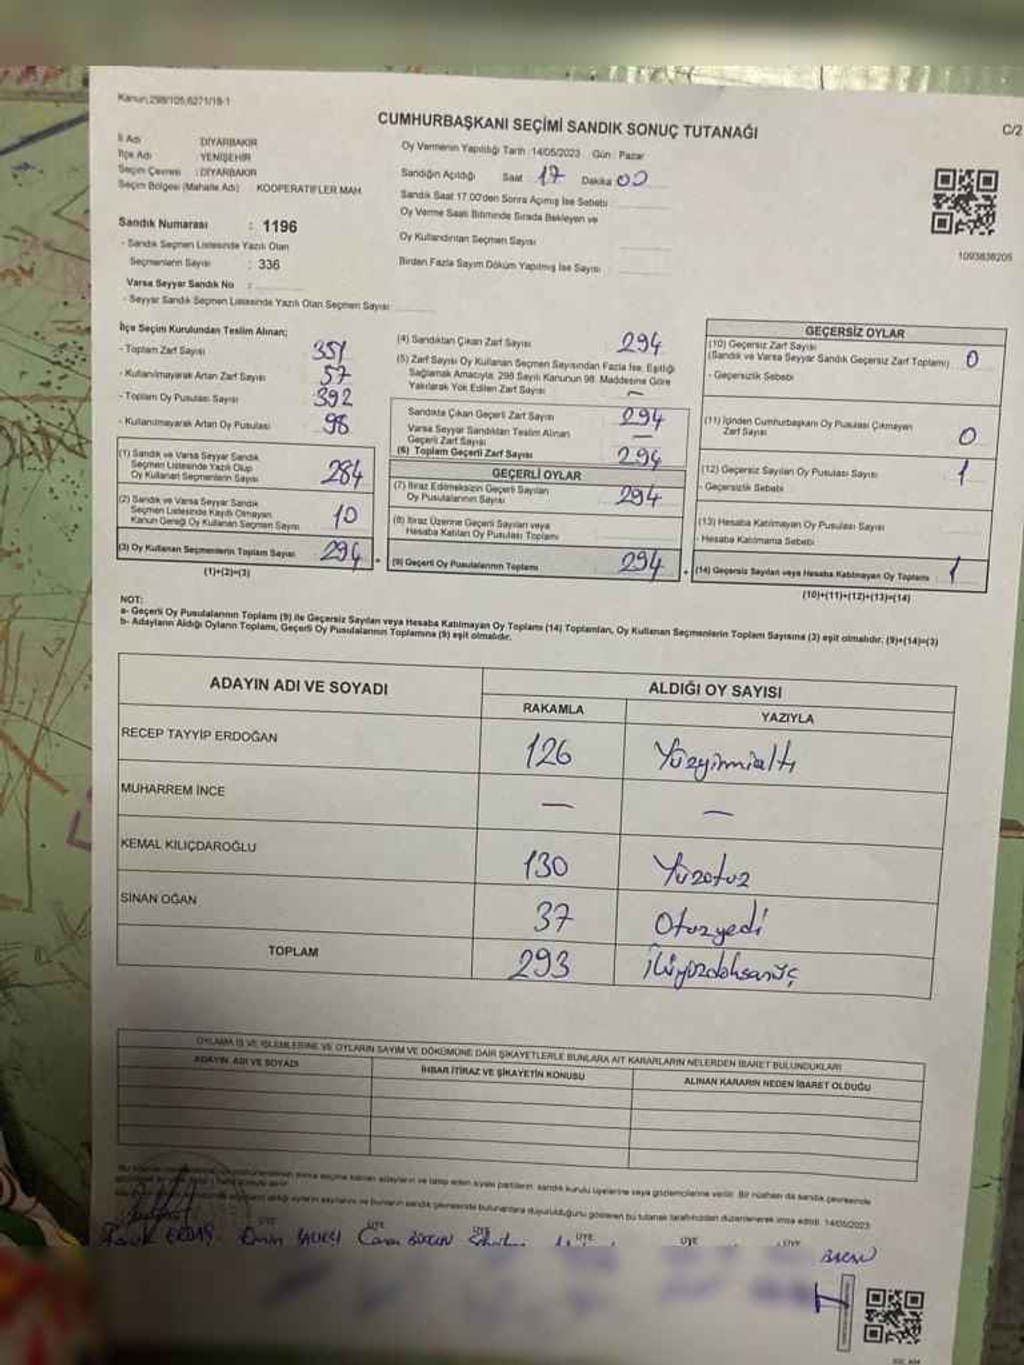 Kanun:298/105,6271/18-1
CUMHURBAŞKANI SEÇİMİ SANDIK SONUÇ TUTANAĞI
C/2
İl Adı : DİYARBAKIR
İlçe Adı : YENİŞEHİR
Seçim Çevresi : DİYARBAKIR
Seçim Bölgesi (Mahalle Adı) : KOOPERATİFLER MAH.
Oy Vermenin Yapıldığı Tarih : 14/05/2023 Gün : Pazar
Sandığın Açıldığı Saat : 17 Dakika 00
Sandık Saat 17.00'den Sonra Açılmış İse Sebebi
Oy Verme Saati Bitiminde Sırada Bekleyen ve
Oy Kullandırılan Seçmen Sayısı
Birden Fazla Sayım Döküm Yapılmış İse Sayısı
1093838205
Sandık Numarası : 1196
- Sandık Seçmen Listesinde Yazılı Olan
Seçmenlerin Sayısı : 336
Varsa Seyyar Sandık No :
- Seyyar Sandık Seçmen Listesinde Yazılı Olan Seçmen Sayısı:
İlçe Seçim Kurulundan Teslim Alınan;
- Toplam Zarf Sayısı 351
- Kullanılmayarak Artan Zarf Sayısı 57
- Toplam Oy Pusulası Sayısı 392
- Kullanılmayarak Artan Oy Pusulası 98
(1) Sandık ve Varsa Seyyar Sandık
Seçmen Listesinde Yazılı Olup
Oy Kullanan Seçmenlerin Sayısı 284
(2) Sandık ve Varsa Seyyar Sandık
Seçmen Listesinde Kaydı Olmayan
Kanun Gereği Oy Kullanan Seçmen Sayısı 10
(3) Oy Kullanan Seçmenlerin Toplam Sayısı 294
(1)+(2)=(3)
(4) Sandıktan Çıkan Zarf Sayısı 294
(5) Zarf Sayısı Oy Kullanan Seçmen Sayısından Fazla İse, Eşitliği
Sağlamak Amacıyla; 298 Sayılı Kanunun 98. Maddesine Göre
Yakılarak Yok Edilen Zarf Sayısı —
Sandıkta Çıkan Geçerli Zarf Sayısı 294
Varsa Seyyar Sandıktan Teslim Alınan
Geçerli Zarf Sayısı —
(6) Toplam Geçerli Zarf Sayısı 294
GEÇERLİ OYLAR
(7) İtiraz Edilmeksizin Geçerli Sayılan
Oy Pusulalarının Sayısı 294
(8) İtiraz Üzerine Geçerli Sayılan veya
Hesaba Katılan Oy Pusulası Toplamı
(9) Geçerli Oy Pusulalarının Toplamı 294
GEÇERSİZ OYLAR
(10) Geçersiz Zarf Sayısı
(Sandık ve Varsa Seyyar Sandık Geçersiz Zarf Toplamı) 0
- Geçersizlik Sebebi
(11) İçinden Cumhurbaşkanı Oy Pusulası Çıkmayan
Zarf Sayısı 0
(12) Geçersiz Sayılan Oy Pusulası Sayısı 1
- Geçersizlik Sebebi
(13) Hesaba Katılmayan Oy Pusulası Sayısı
- Hesaba Katılmama Sebebi
(14) Geçersiz Sayılan veya Hesaba Katılmayan Oy Toplamı 1
(10)+(11)+(12)+(13)=(14)
NOT:
a- Geçerli Oy Pusulalarının Toplamı (9) ile Geçersiz Sayılan veya Hesaba Katılmayan Oy Toplamı (14) Toplamları, Oy Kullanan Seçmenlerin Toplam Sayısına (3) eşit olmalıdır, (9)+(14)=(3)
b- Adayların Aldığı Oyların Toplamı, Geçerli Oy Pusulalarının Toplamına (9) eşit olmalıdır.
ADAYIN ADI VE SOYADI ALDIĞI OY SAYISI
RAKAMLA YAZIYLA
RECEP TAYYİP ERDOĞAN 126 Yüzyirmialtı
MUHARREM İNCE — —
KEMAL KILIÇDAROĞLU 130 Yüzotuz
SİNAN OĞAN 37 Otuzyedi
TOPLAM 293 İkiyüzdoksanüç
OYLAMA İŞ VE İŞLEMLERİNE VE OYLARIN SAYIM VE DÖKÜMÜNE DAİR ŞİKAYETLERLE BUNLARA AİT KARARLARIN NELERDEN İBARET BULUNDUKLARI
ADAYIN ADI VE SOYADI İHBAR İTİRAZ VE ŞİKAYETİN KONUSU ALINAN KARARIN NEDEN İBARET OLDUĞU
ÜYE ÜYE ÜYE ÜYE ÜYE ÜYE